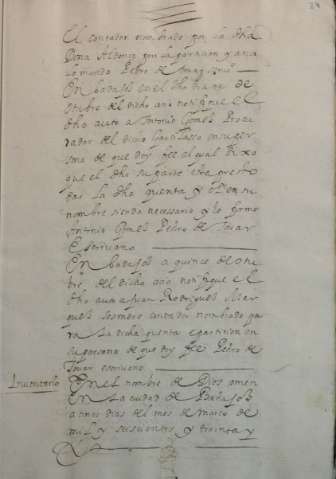 29
El contador nombrado por la dha
Dona
lo mando Pedro de
En badajoz en el dho dia mes de
otubre del dicho año notifique el
dho auto a Antonio Gomes Procu
rador del dicho en su per
sona de que doy fee el qual Dixo
que el dho su parte esta presto
dar la dha quenta y el en su
nombre siendo necessario y lo firmo
Antonio Gomes Pedro de
Escrivano
En badajoz a quince de
bre del dicho año notifique el
dho auto a Juan Rodrigues Mar
ques contador nombrado pa
ra la dicha quenta e particion en
su persona de que doy fee Pedro de
escrivano
Inventario
En el nombre de Dios amen
En la ciudad de Badajoz
a cinco dias del mes de março de
mil y seiscientos y treinta y